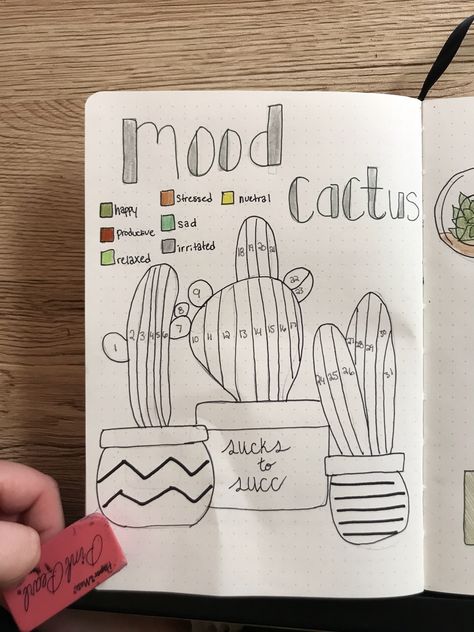 mood
cactus
happy
productive
relaxed
stressed
sad
irritated
nuetral
1
2 3 4 5 6
7
8
9
10 11 12 13 14 15 16 17
18 19 20 21
22
23
24 25 26
27 28 29 30
31
sucks
to
succ
Paper Mate
Pink Pearl